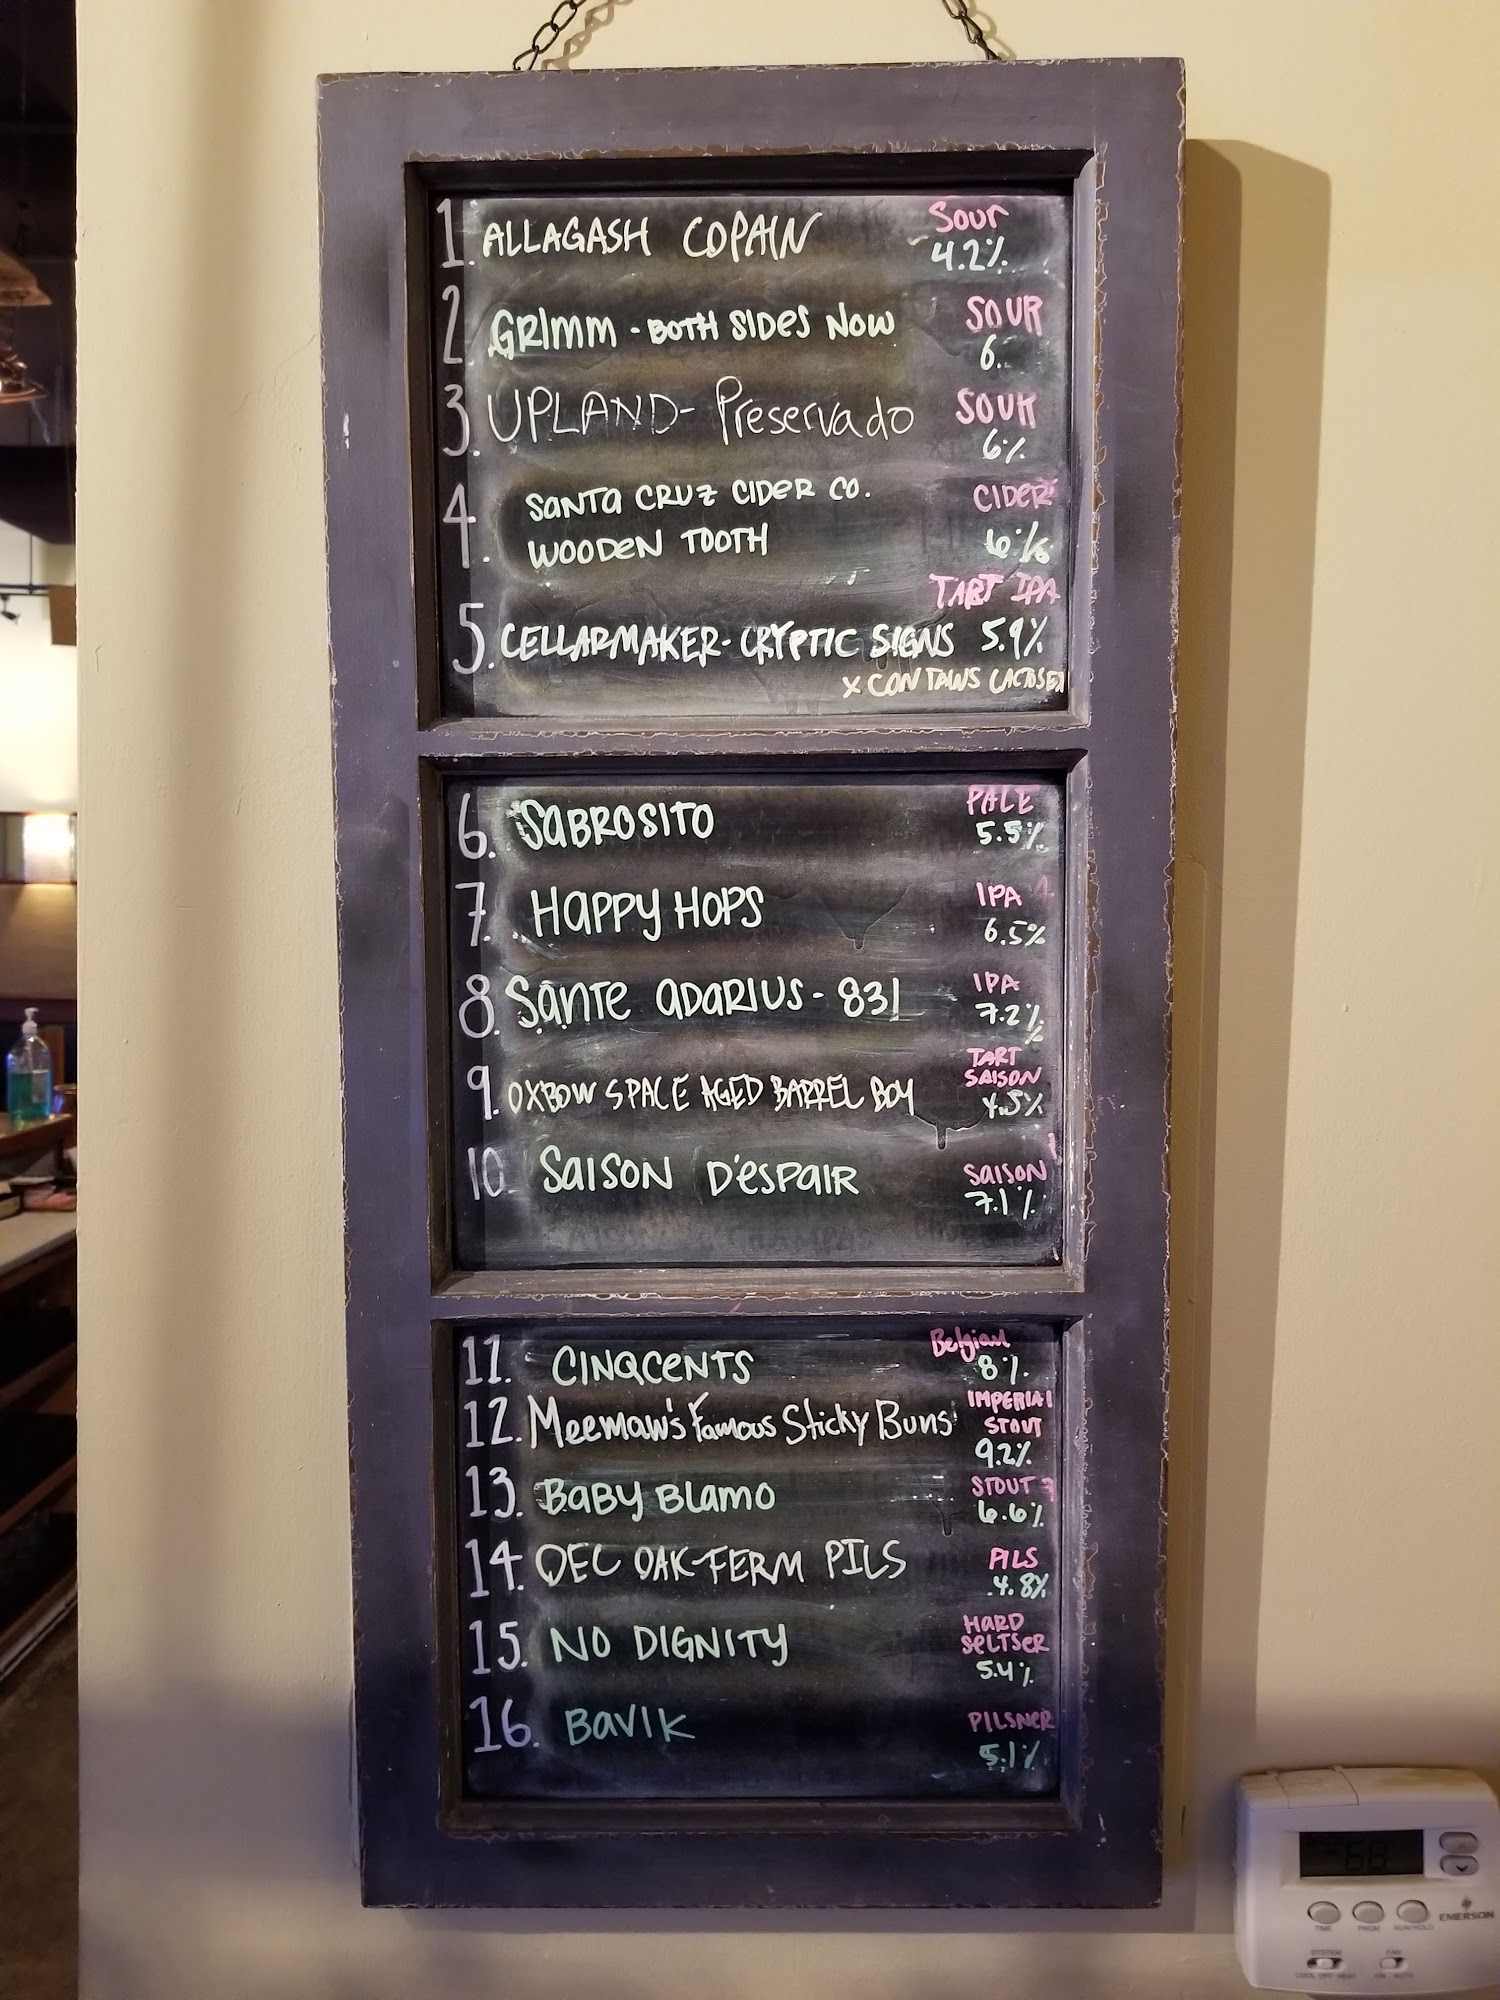 1. ALLAGASH COPAIN Sour
4.2%
2. GRIMM - BOTH SIDES NOW SOUR
6.
3. UPLAND- Preservado SOUR
6%
4. SANTA CRUZ CIDER CO. CIDER
WOODEN TOOTH 6%
TART IPA
5. CELLARMAKER- CRYPTIC SIGNS 5.9%
x CONTAINS LACTOSE
6. SABROSITO PALE
5.5%
7. HAPPY HOPS IPA
6.5%
8. SANTE ADARIUS - 831 IPA
7.2%
9. OXBOW SPACE AGED BARREL BOY TART
SAISON
4.5%
10 SAISON D'ESPAIR SAISON
7.1%
11. CINQCENTS Belgian
8%
12. Meemaw's Famous Sticky Buns IMPERIAL
STOUT
9.2%
13. BABY BLAMO STOUT
6.6%
14. OEC OAK-FERM PILS PILS
4.8%
15. NO DIGNITY HARD
SELTSER
5.4%
16. BAVIK PILSNER
5.1%
68
EMERSON
TIME PRGM RUN/HOLD
SYSTEM FAN
COOL OFF HEAT ON AUTO